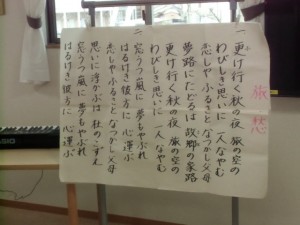 旅愁
一 更け行く秋の夜 旅の空の
わびしき思いに 一人なやむ
恋しやふるさと なつかし父母
夢路にたどるは 故郷の家路
更け行く秋の夜 旅の空の
わびしき思いに 一人なやむ
二 窓うつ風に 夢もやぶれ
はるけき彼方に 心運ぶ
恋しやふるさと なつかし父母
思いに浮かぶは 杜のこずえ
窓うつ風に 夢もやぶれ
はるけき彼方に 心運ぶ